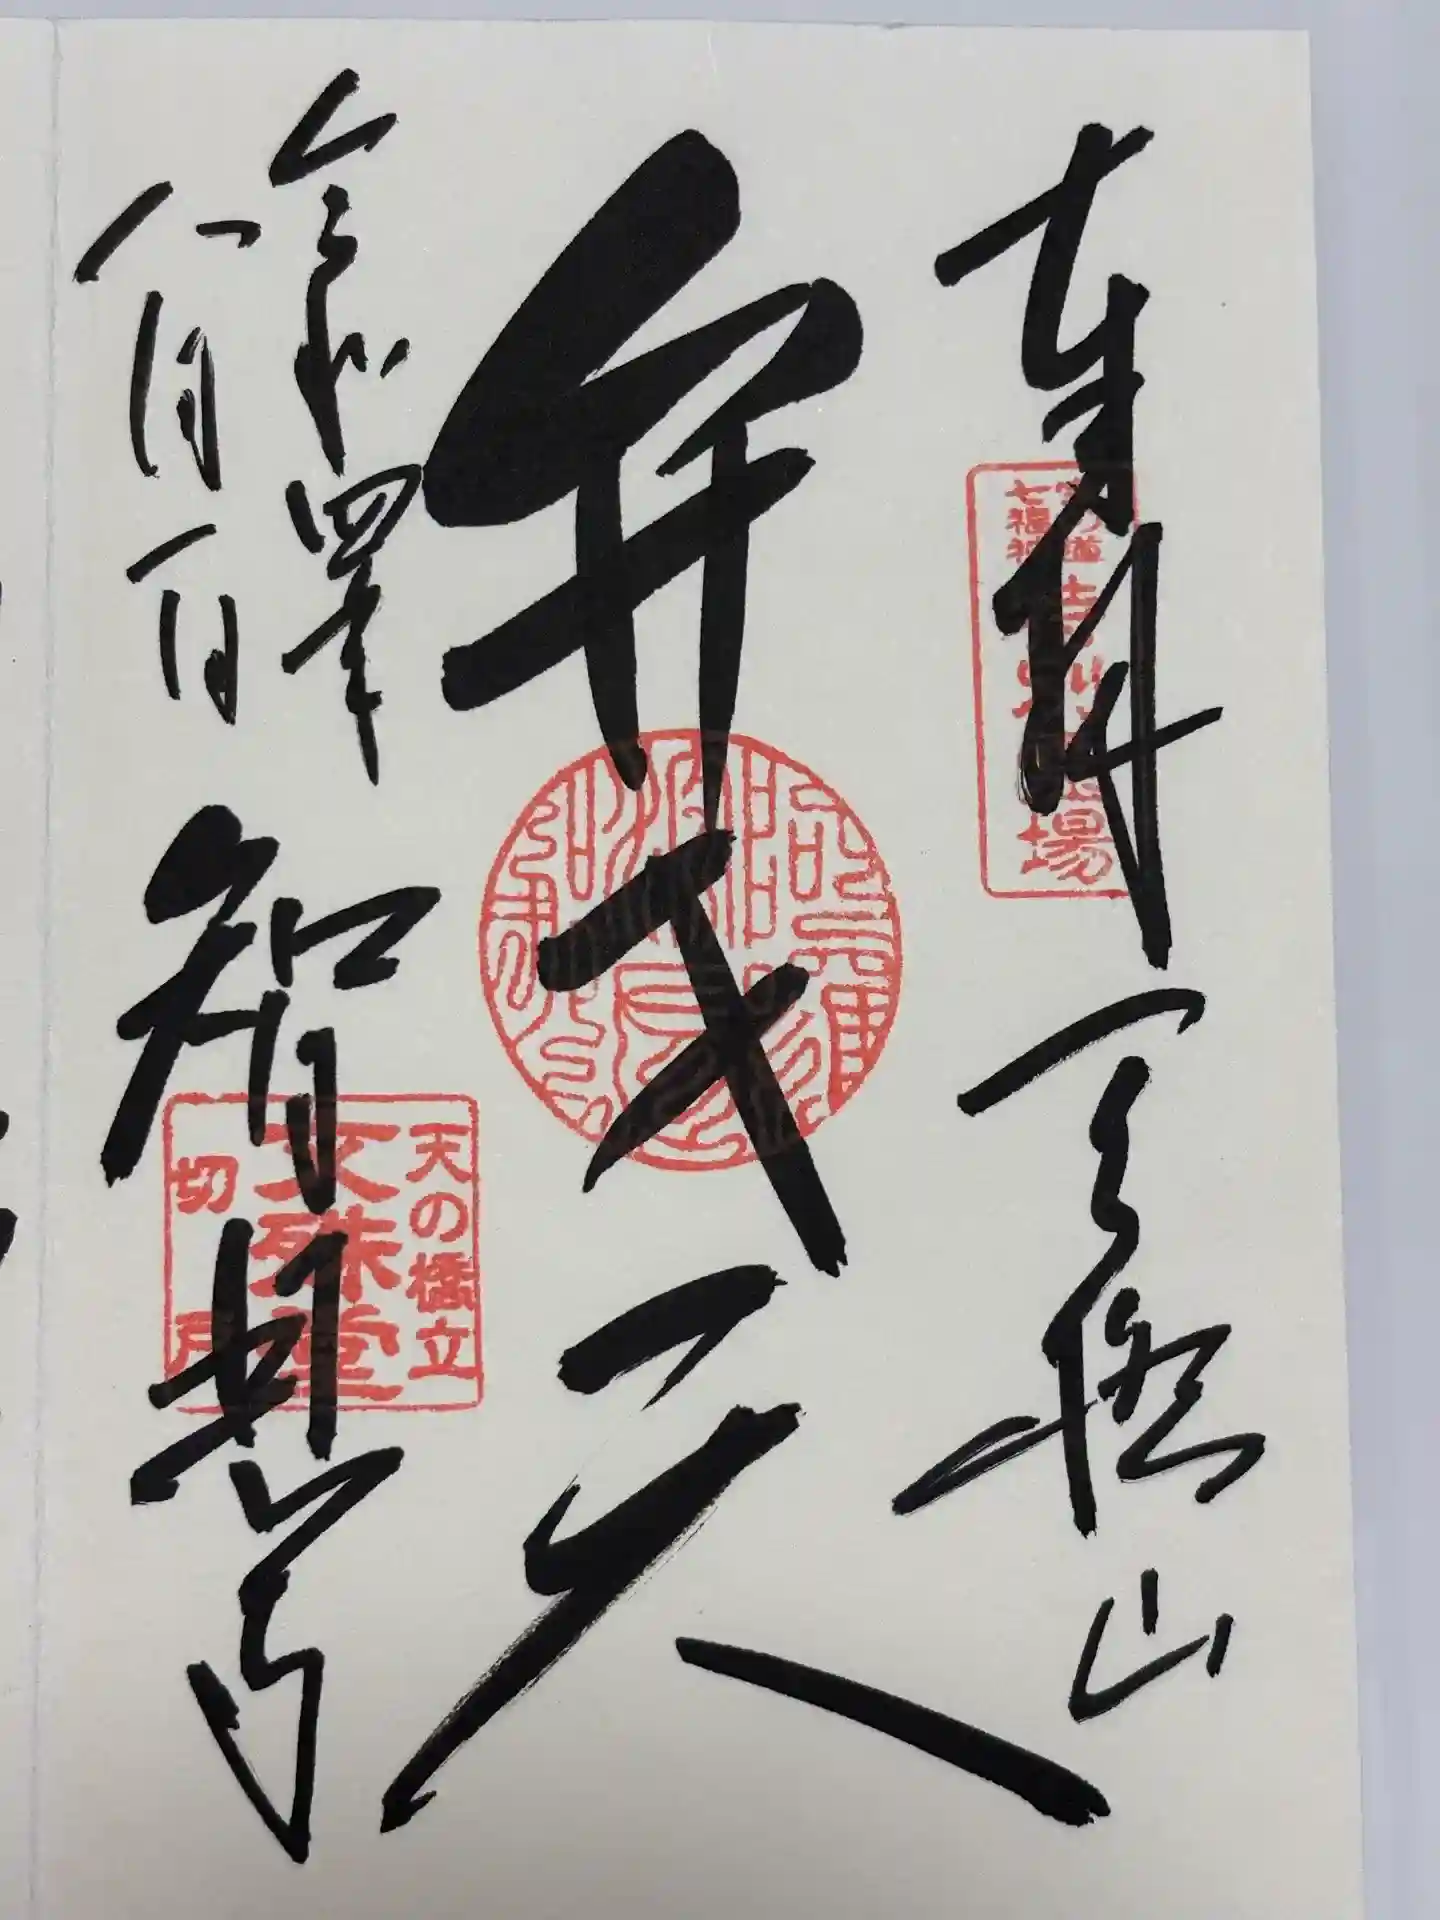 奉拝 天橋山
弁才天
令和四年
八月一日
智恩寺
七福神
吉祥霊場
天の橋立
文殊堂
切戸